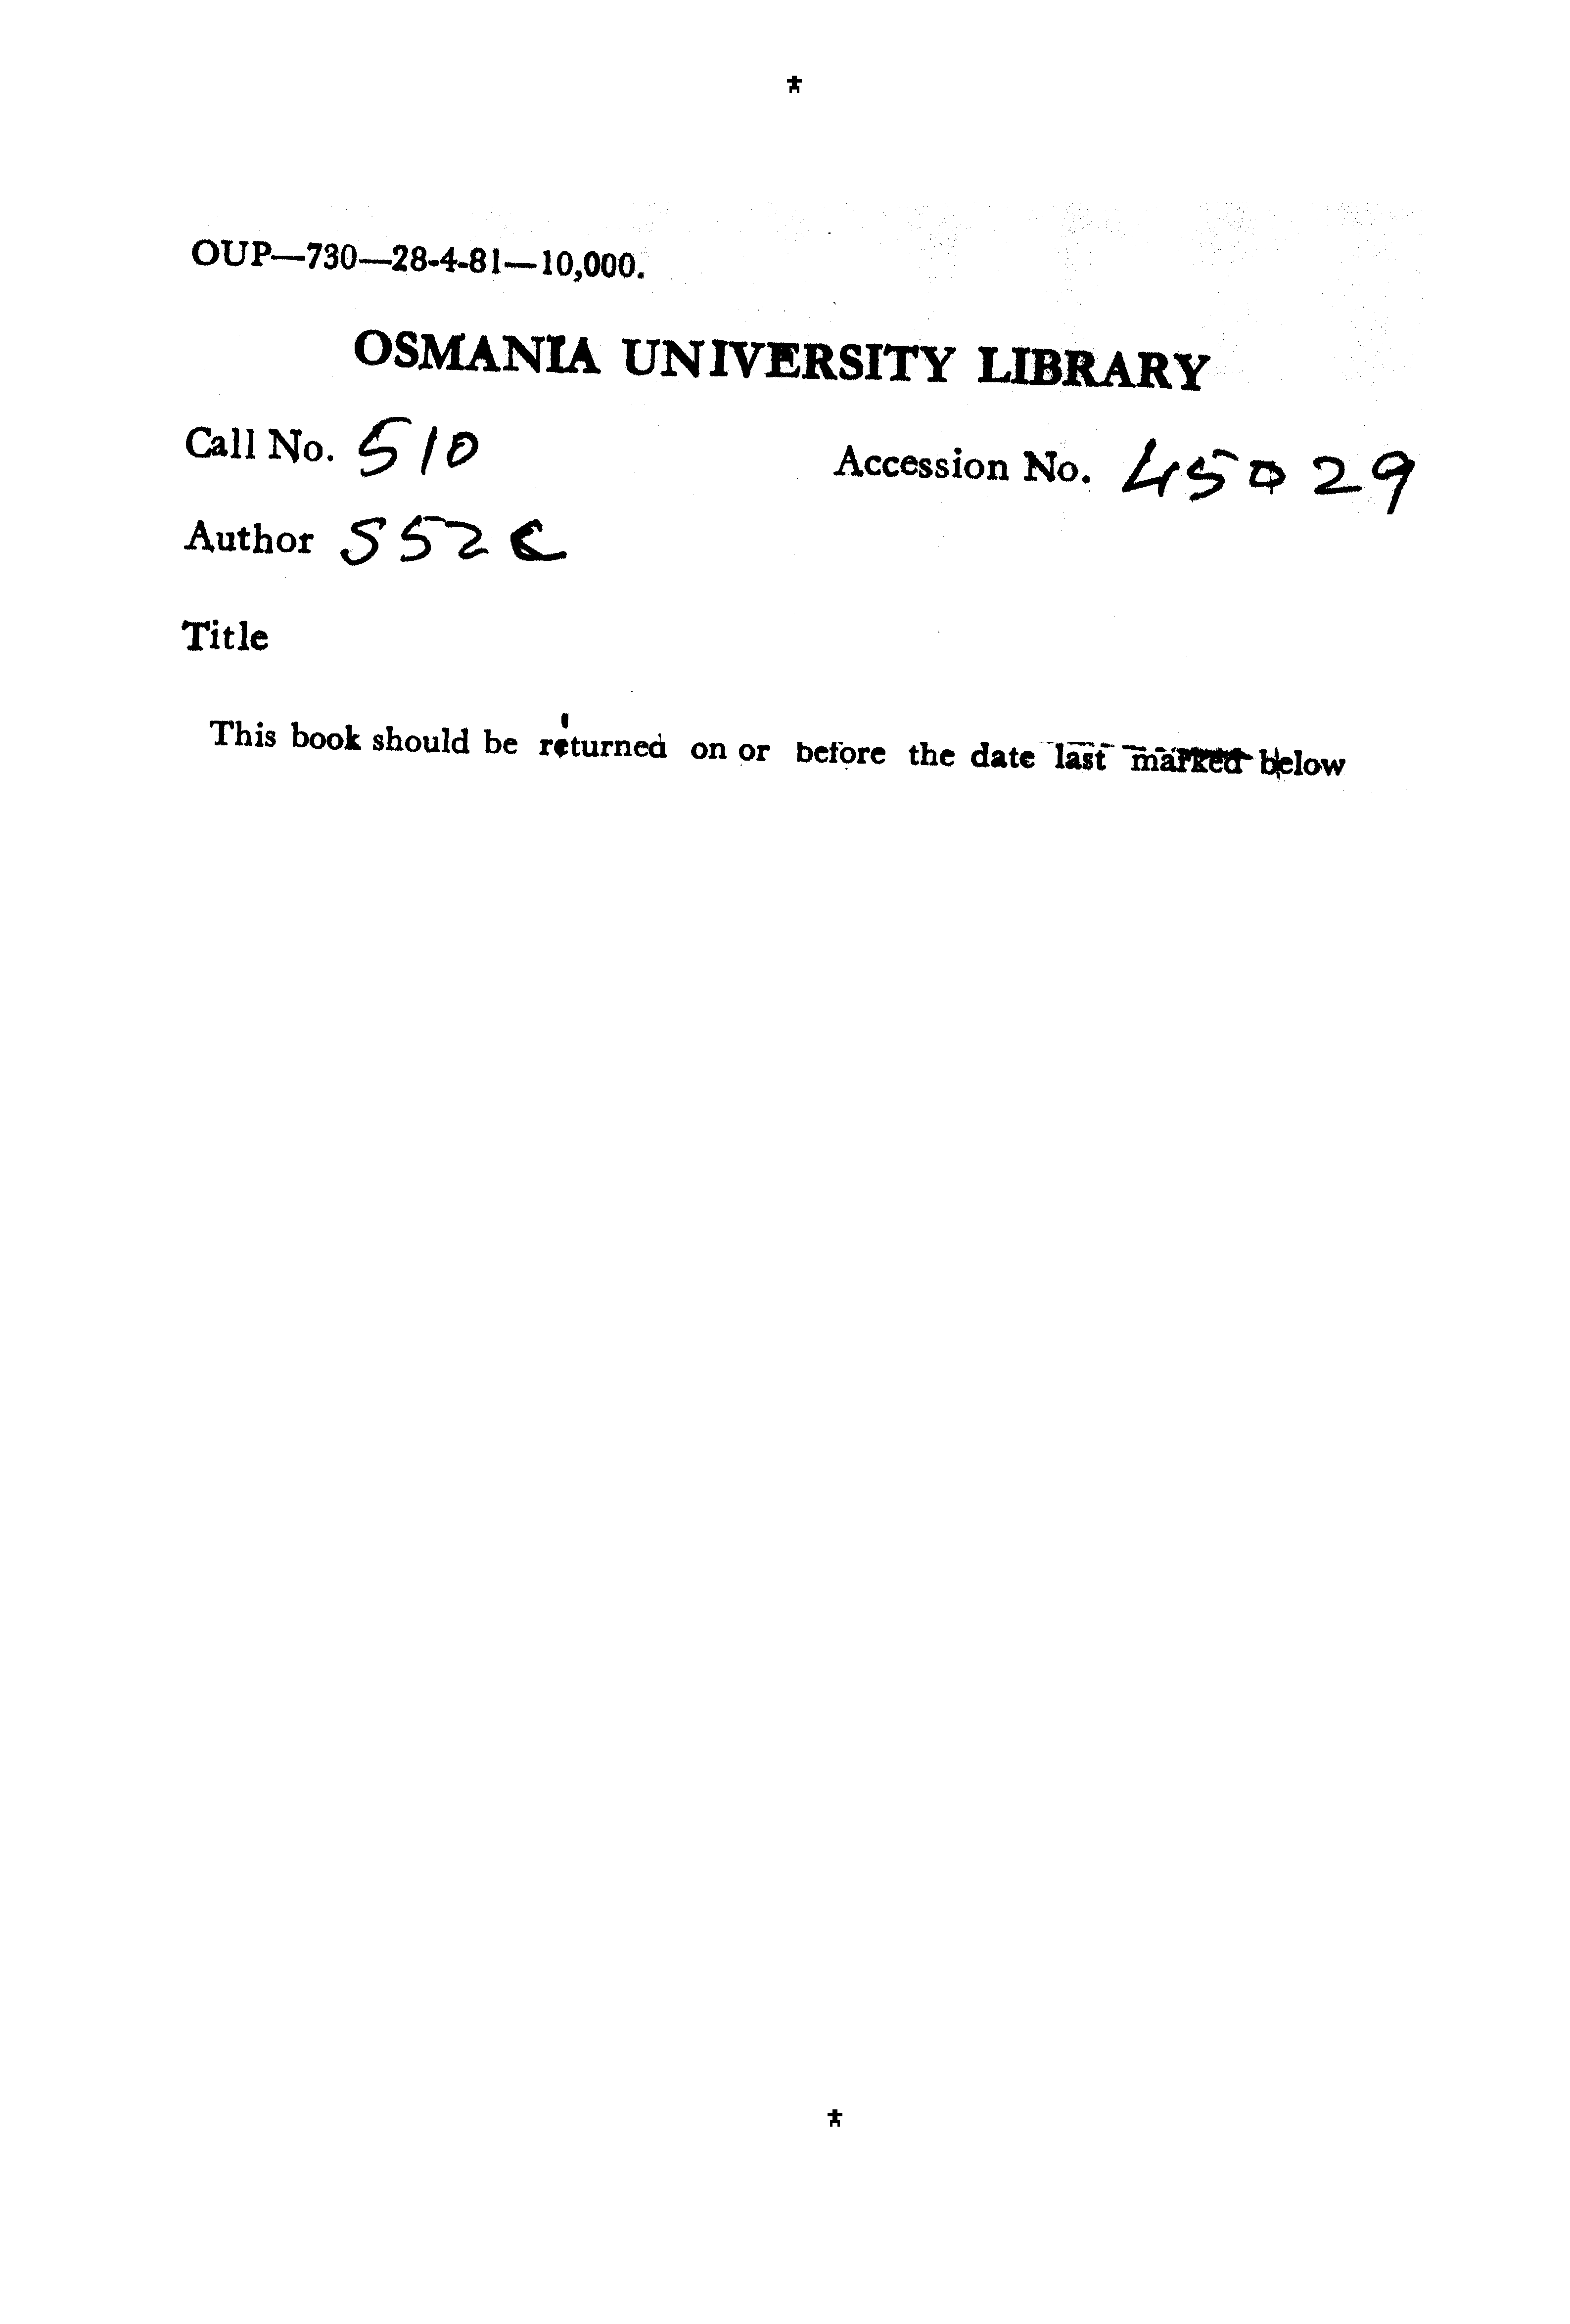 OUP—730—28-4-81—10,000.
OSMANIA UNIVERSITY LIBRARY
Call No. 510 Accession No. 45029
Author S52C
Title
This book should be returned on or before the date last marked below